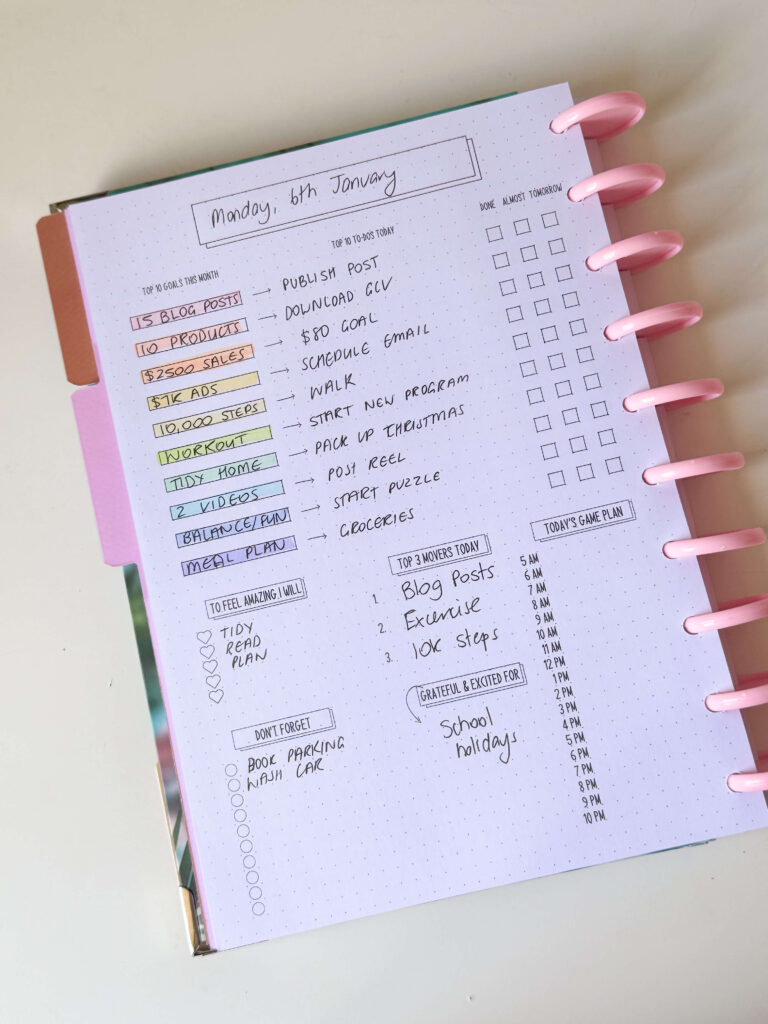 Monday, 6th January
DONE ALMOST TOMORROW
TOP 10 GOALS THIS MONTH
TOP 10 TO-DOS TODAY
15 BLOG POSTS → PUBLISH POST
10 PRODUCTS → DOWNLOAD GCV
$2500 SALES → $80 GOAL
$1K ADS → SCHEDULE EMAIL
10,000 STEPS → WALK
WORKOUT → START NEW PROGRAM
TIDY HOME → PACK UP CHRISTMAS
2 VIDEOS → POST REEL
BALANCE/FUN → START PUZZLE
MEAL PLAN → GROCERIES
TO FEEL AMAZING I WILL
TIDY
READ
PLAN
DON'T FORGET
BOOK PARKING
WASH CAR
TOP 3 MOVERS TODAY
1. Blog Posts
2. Excercise
3. 10K steps
GRATEFUL & EXCITED FOR
School
holidays
TODAY'S GAME PLAN
5 AM
6 AM
7 AM
8 AM
9 AM
10 AM
11 AM
12 PM
1 PM
2 PM
3 PM
4 PM
5 PM
6 PM
7 PM
8 PM
9 PM
10 PM